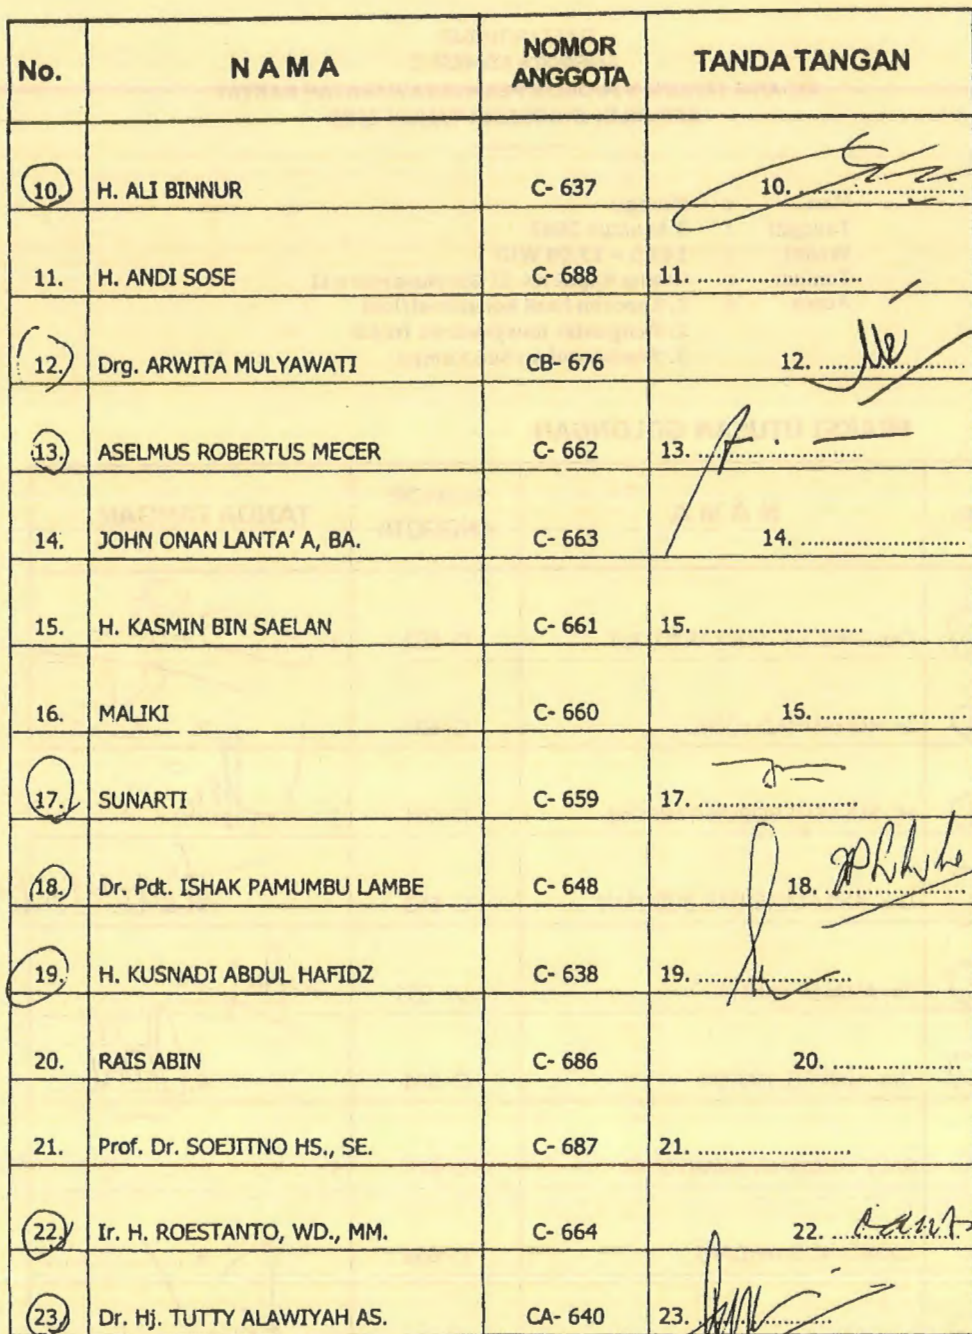 No. NAMA NOMOR ANGGOTA TANDA TANGAN
10. H. ALI BINNUR C- 637 10. ........................
11. H. ANDI SOSE C- 688 11. ........................
12. Drg. ARWITA MULYAWATI CB- 676 12. ........................
13. ASELMUS ROBERTUS MECER C- 662 13. ........................
14. JOHN ONAN LANTA' A, BA. C- 663 14. ........................
15. H. KASMIN BIN SAELAN C- 661 15. ........................
16. MALIKI C- 660 16. ........................
17. SUNARTI C- 659 17. ........................
18. Dr. Pdt. ISHAK PAMUMBU LAMBE C- 648 18. ........................
19. H. KUSNADI ABDUL HAFIDZ C- 638 19. ........................
20. RAIS ABIN C- 686 20. ........................
21. Prof. Dr. SOEJITNO HS., SE. C- 687 21. ........................
22. Ir. H. ROESTANTO, WD., MM. C- 664 22. ........................
23. Dr. Hj. TUTTY ALAWIYAH AS. CA- 640 23. ........................